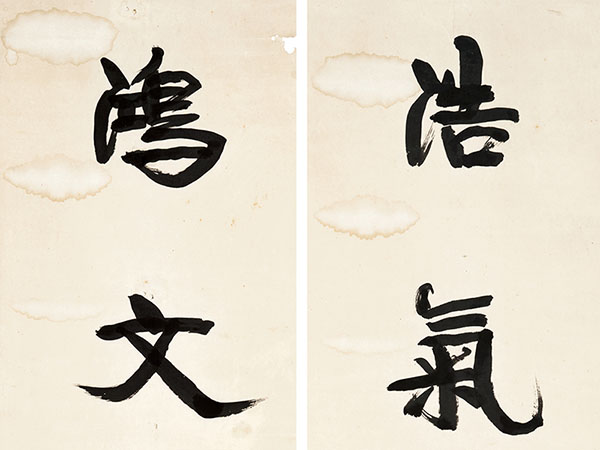 浩氣
鴻文